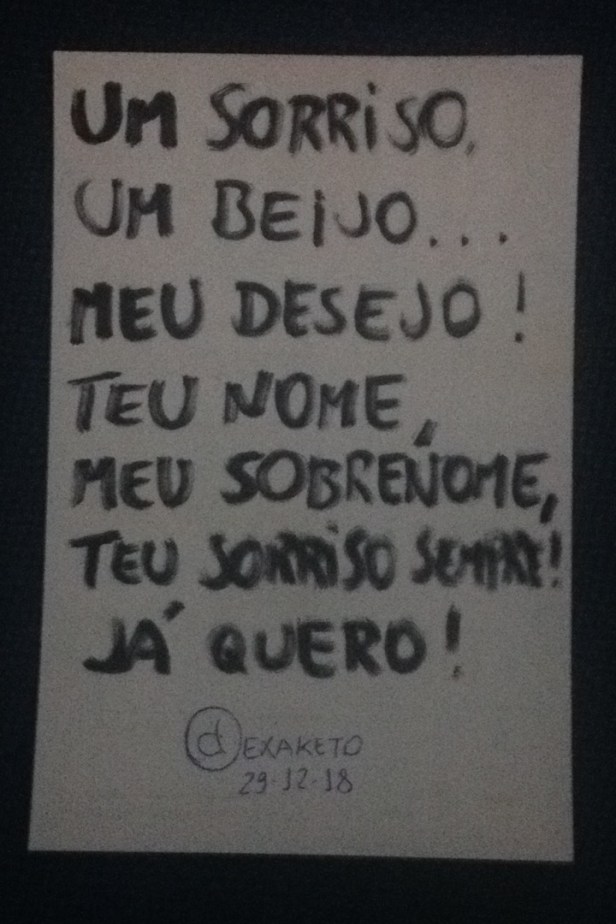 UM SORRISO,
UM BEIJO...
MEU DESEJO!
TEU NOME,
MEU SOBRENOME,
TEU SORRISO SEMPRE!
JÁ QUERO!
dEXAKETO
29-12-18